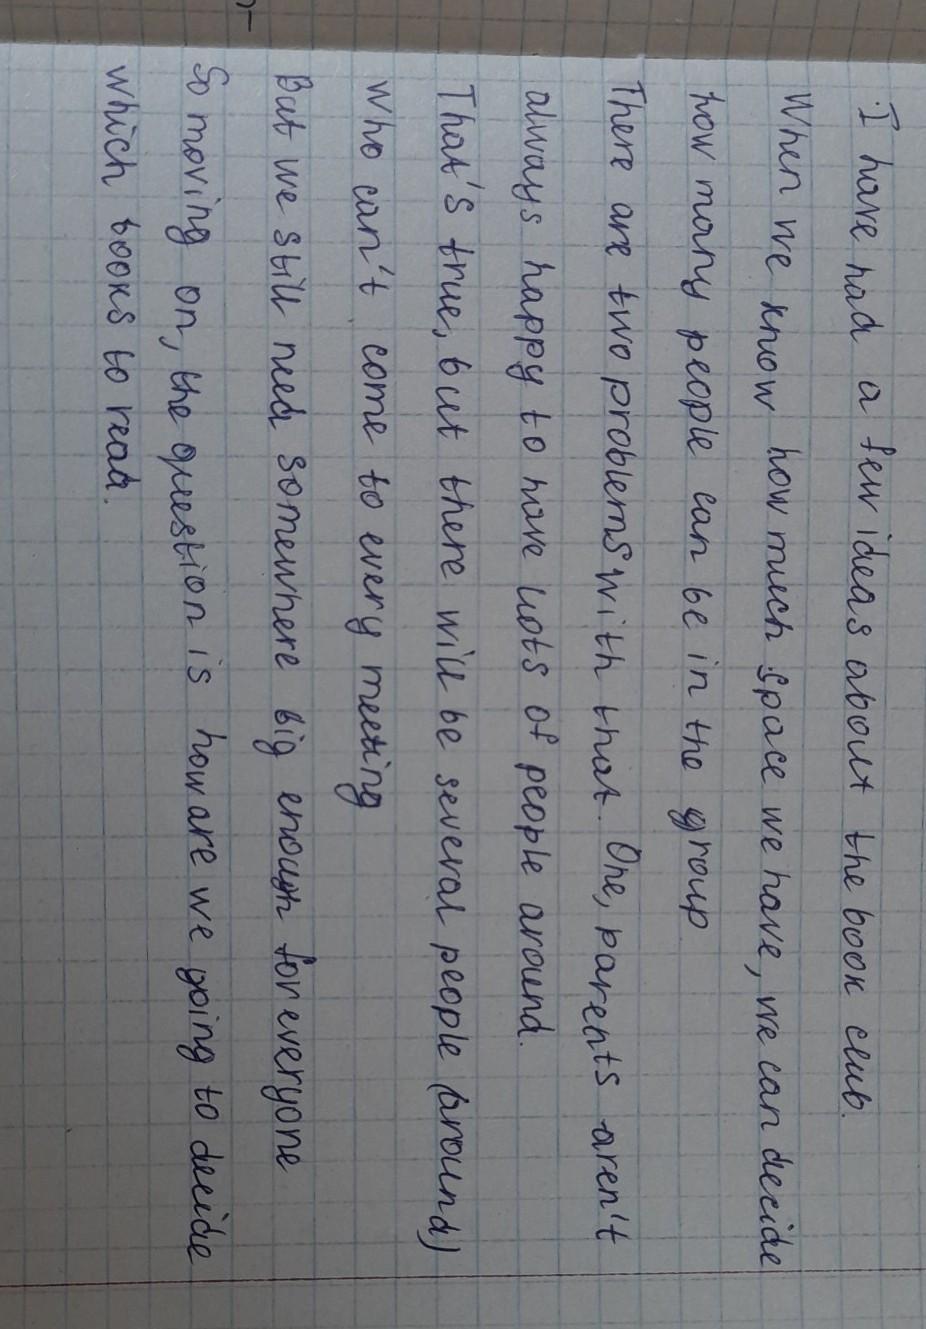 I have had a few ideas about the book club.
When we know how much space we have, we can decide
how many people can be in the group
There are two problems with that. One, parents aren't
always happy to have lots of people around.
That's true, but there will be several people (around)
who can't come to every meeting
But we still need somewhere big enough for everyone
So moving on, the question is how are we going to decide
which books to read.